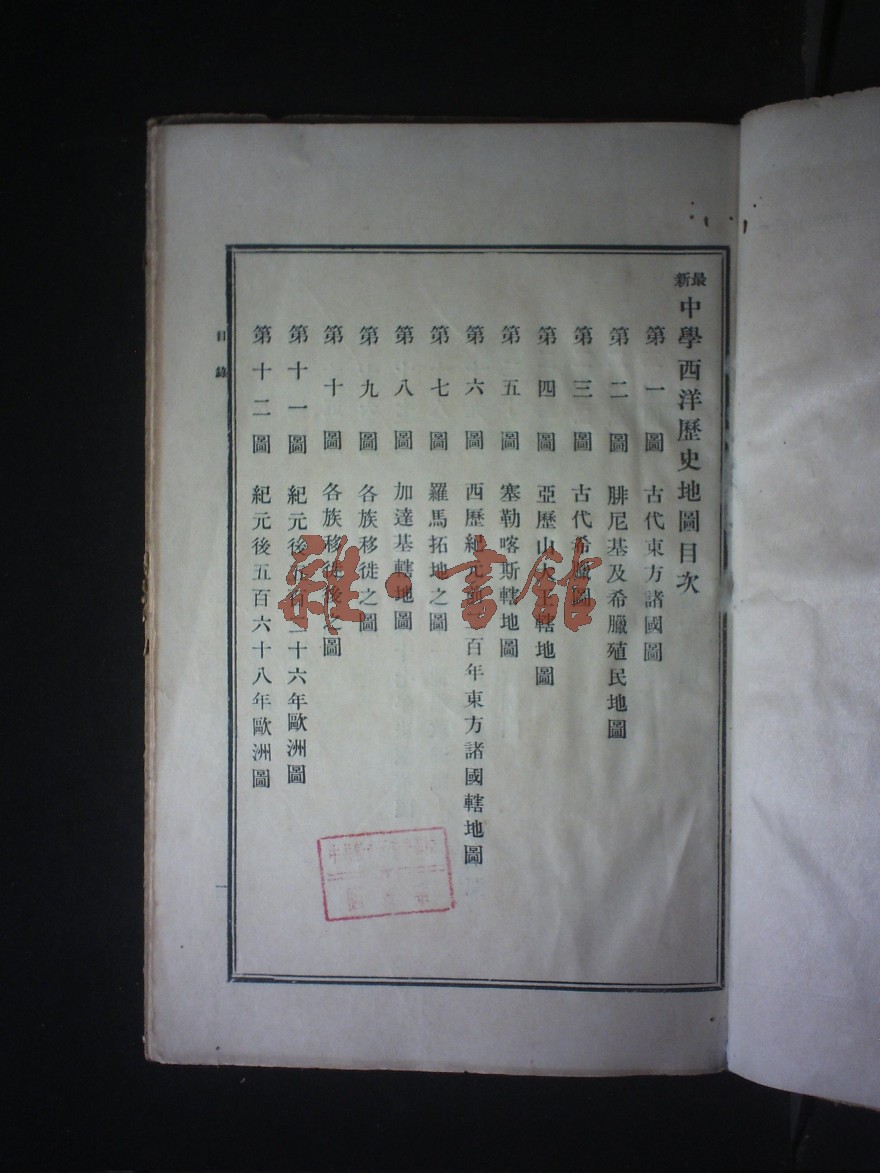 最新中學西洋歷史地圖目次
第一圖 古代東方諸國圖
第二圖 腓尼基及希臘殖民地圖
第三圖 古代希臘圖
第四圖 亞歷山大王轄地圖
第五圖 塞勒喀斯轄地圖
第六圖 西歷紀元前 百年東方諸國轄地圖
第七圖 羅馬拓地之圖
第八圖 加達基轄地圖
第九圖 各族移徙之圖
第十圖 各族移徙後之圖
第十一圖 紀元後 百二十六年歐洲圖
第十二圖 紀元後五百六十八年歐洲圖
目錄
一
雜·書館